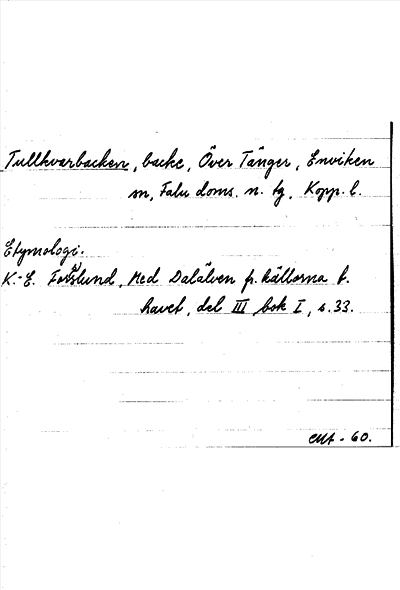 Tullkvarbacken, backe, Över Tänger, Enviken
sn, Falu doms. n. tg, Kopp. l.
Etymologi.
K.-E. Forslund, Med Dalälven fr. källorna t.
havet, del III bok I, s. 33.
- 60.